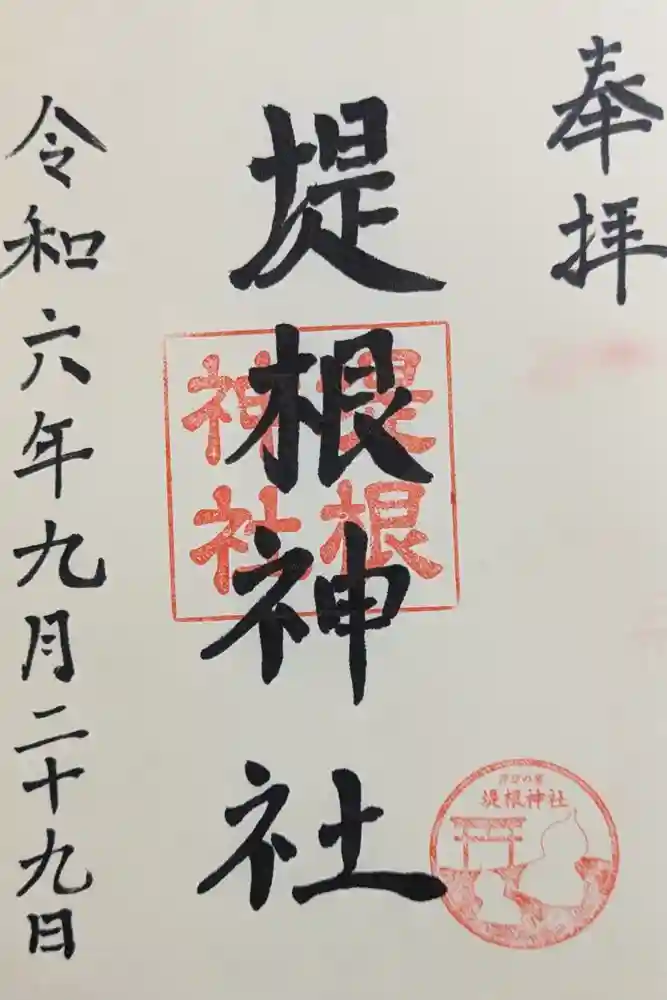 奉拝
堤根神社
堤根
神社
堤根神社
令和六年九月二十九日